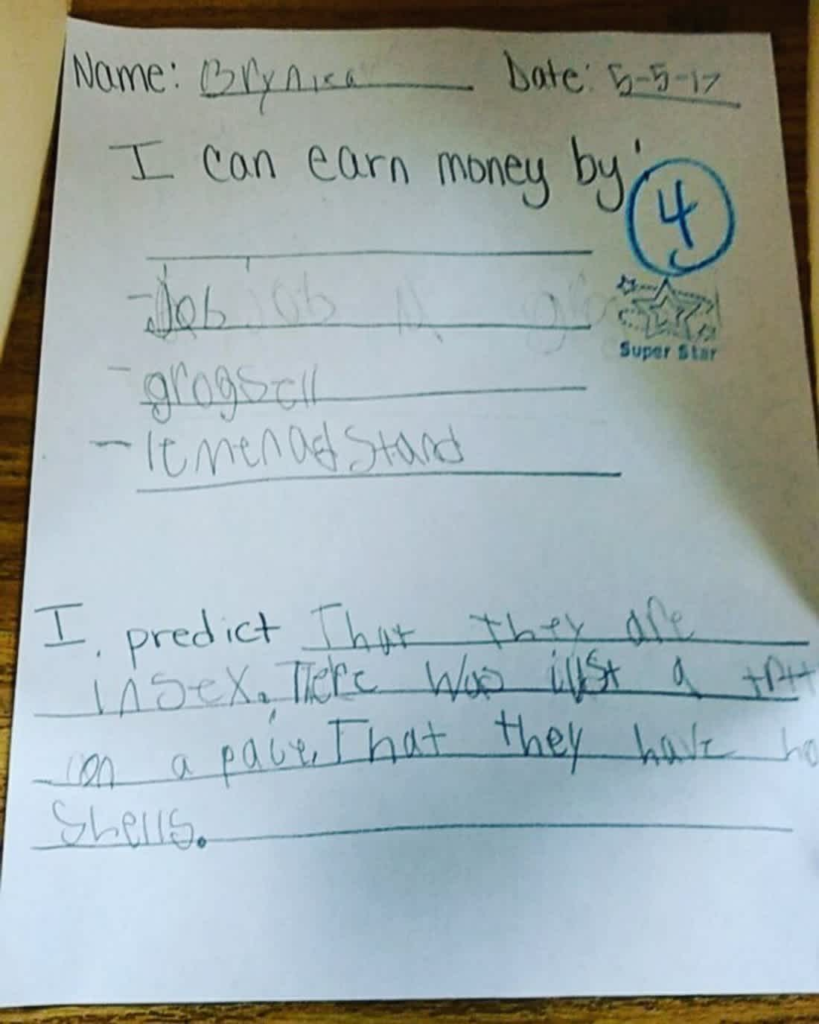 Name: Brynisa Date: 5-5-17
I can earn money by:
4
- Job
Super Star
- grogsell
- lemenad Stand
I. predict That they are
insex. There was just a
on a paje. That they have
Shells.